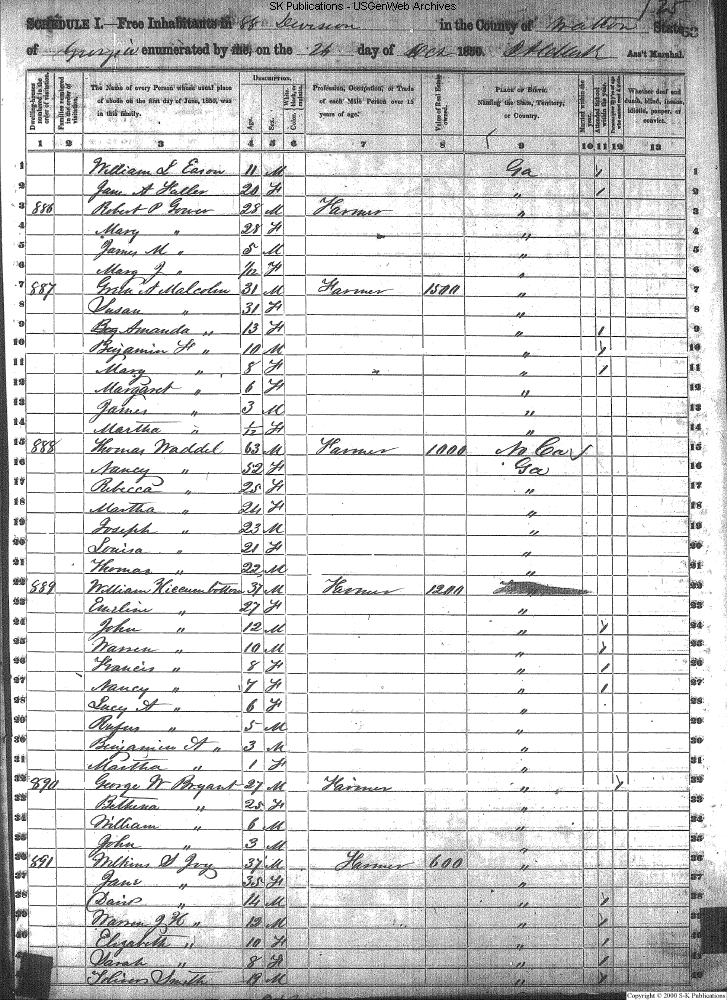 SK Publications - USGenWeb Archives
SCHEDULE I.—Free Inhabitants in 88 Division in the County of Walton State
of Georgia enumerated by me, on the 26 day of Oct 1850. Ass't Marshal.
Dwelling-houses numbered in the order of visitation.
Families numbered in the order of visitation.
The Name of every Person whose usual place of abode on the first day of June, 1850, was in this family.
DESCRIPTION.
Age.
Sex.
White, black, or mulatto.
Color
Profession, Occupation, or Trade of each Male Person over 15 years of age.
Value of Real Estate owned.
PLACE OF BIRTH. Naming the State, Territory, or Country.
Married within the year.
Attended School within the year.
Whether deaf and dumb, blind, insane, idiotic, pauper, or convict.
1 2 3 4 5 6 7 8 9 10 11 12 13
1 William L Eason 11 M Ga / 1
2 Jane A Haller 20 F " / 2
3 886 Robert P Gower 28 M Farmer " 3
4 Mary " 28 F " 4
5 James M " 5 M " 5
6 Mary J " 1/12 F " 6
7 887 Green A Malcolm 31 M Farmer 1500 " 7
8 Susan " 31 F " 8
9 Amanda " 13 F " / 9
10 Benjamin F " 10 M " / 10
11 Mary " 8 F " / 11
12 Margaret " 6 F " 12
13 James " 3 M " 13
14 Martha " 1/12 F " 14
15 888 Thomas Waddel 63 M Farmer 1000 No Ca 15
16 Nancy " 52 F Ga 16
17 Rebecca " 25 F " 17
18 Martha " 24 F " 18
19 Joseph " 23 M " 19
20 Louisa " 21 F " 20
21 Thomas " 22 M " 21
22 889 William Hiccumbotton 37 M Farmer 1200 22
23 Emeline " 27 F " 23
24 John " 12 M " / 24
25 Warren " 10 M " / 25
26 Francis " 8 F " / 26
27 Nancy " 7 F " / 27
28 Lucy A " 6 F " 28
29 Rufus " 5 M " 29
30 Benjamin A " 3 M " 30
31 Martha " 1 F " 31
32 890 George W Bryant 27 M Farmer " / 32
33 Bethena " 25 F " 33
34 William " 6 M " 34
35 John " 3 M " 35
36 891 Wilkins S Ivy 37 M Farmer 600 " 36
37 Jane " 35 F " 37
38 David " 14 M " / 38
39 Warren J H " 12 M " / 39
40 Elizabeth " 10 F " /
41 Sarah " 8 F " /
42 Smith 19 M " /
Copyright © 2000 S-K Publications